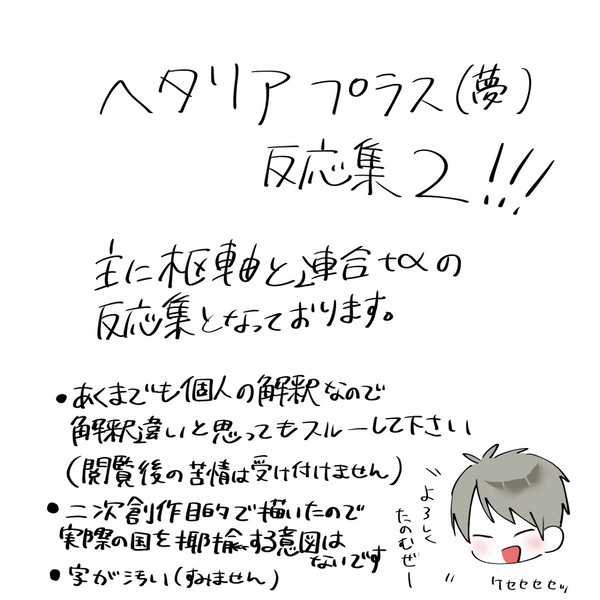 ヘタリア プラス(夢)
反応集2!!!
主に枢軸と連合+αの
反応集となっております。
•あくまでも個人の解釈なので
解釈違いと思ってもスルーして下さい
(閲覧後の苦情は受け付けません)
•二次創作目的で描いたので
実際の国を揶揄する意図は
ないです
•字が汚い(すみません)
よろしく
たのむぜー
ケセセセセッ